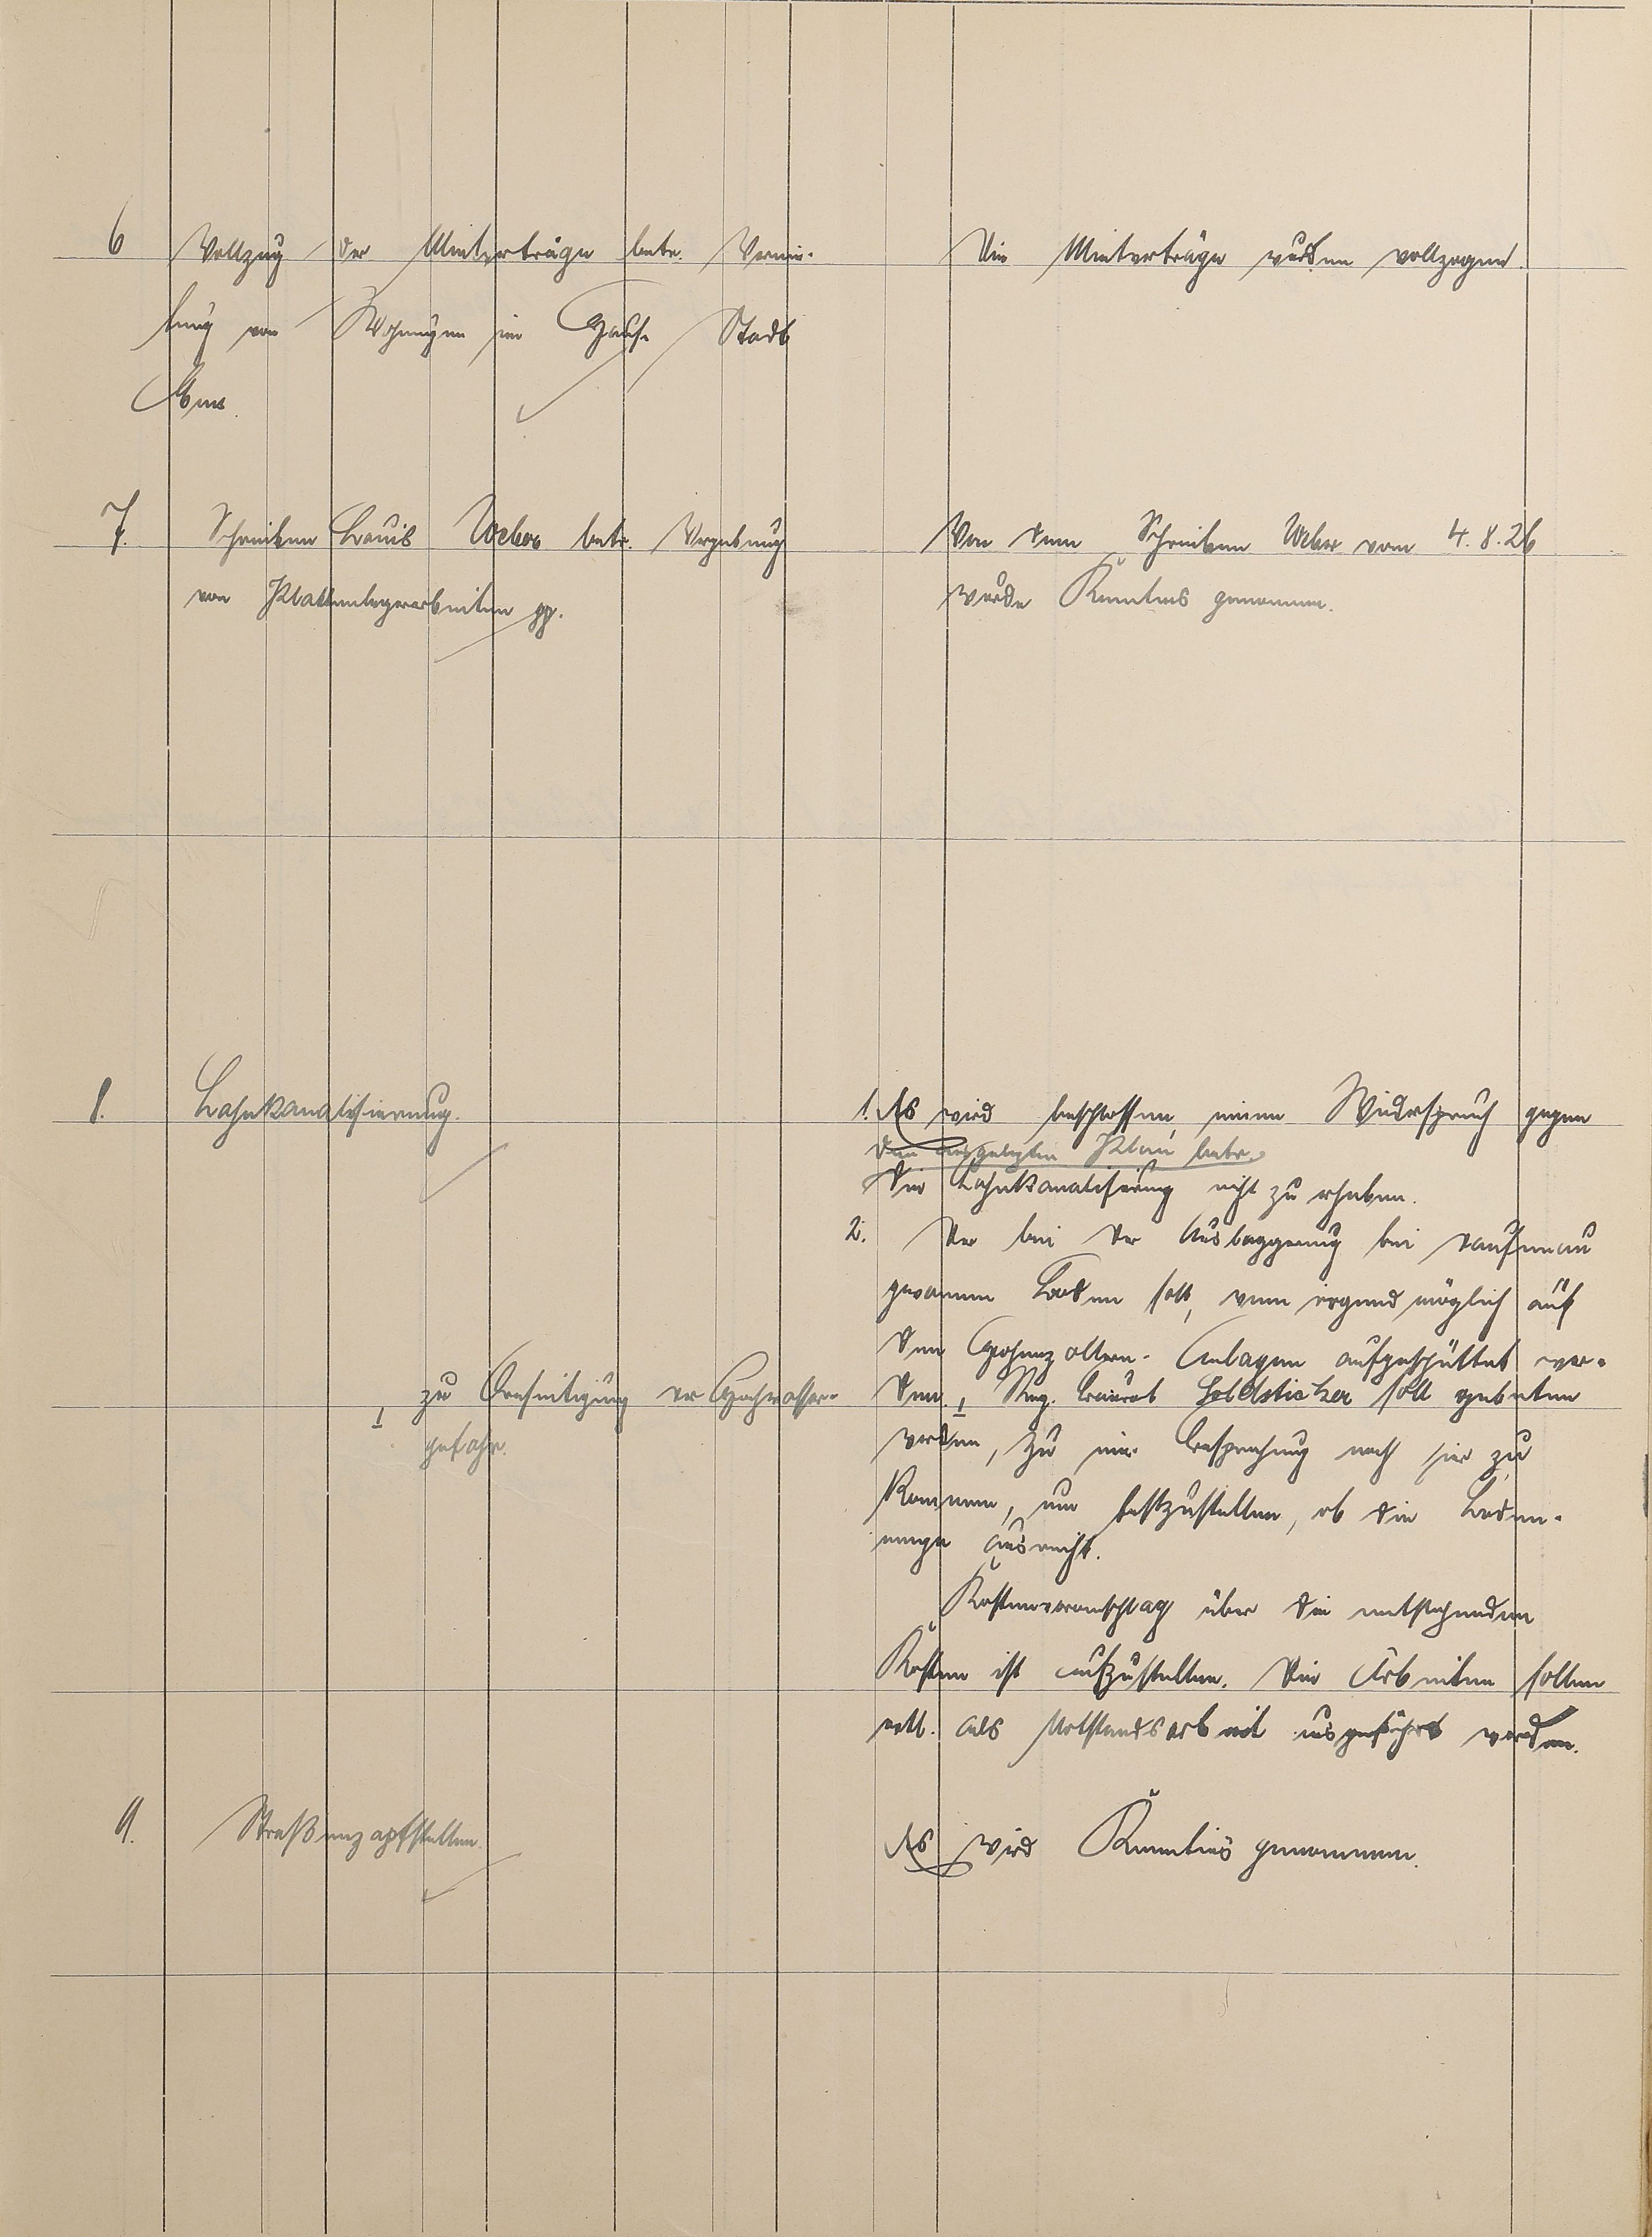 6 Vollzug der Mietverträge betr. Vermie-
tung von Wohnungen im Hause Stadt
Ems.
Die Mietverträge wurden vollzogen.
7. Schreiben Louis Weber betr. Vergebung
von Plattenlegerarbeiten pp.
Von dem Schreiben Weber vom 4.8.26
wurde Kenntnis genommen.
8. Lahnkanalisierung.
1. Es wird beschlossen, einen Widerspruch gegen
den ausgelegten Plan betr.
die Lahnkanalisierung nicht zu erheben.
2. Der bei der Ausbaggerung bei Dausenau
gewonnene Boden soll, wenn irgend möglich auf
den Hohenzollern-Anlagen aufgeschüttet wer-
den. I Reg. Baurat soll gebeten
werden, zu einer Besprechung nach hier zu
kommen, um festzustellen, ob die Boden-
menge ausreicht.
I zu Beseitigung der Hochwasser-
gefahr.
Kostenvoranschlag über die entstehenden
Kosten ist aufzustellen. Die Arbeiten sollen
evtl. als Notstandsarbeit ausgeführt werden.
9. Straßenzapfstellen.
Es wird Kenntnis genommen.